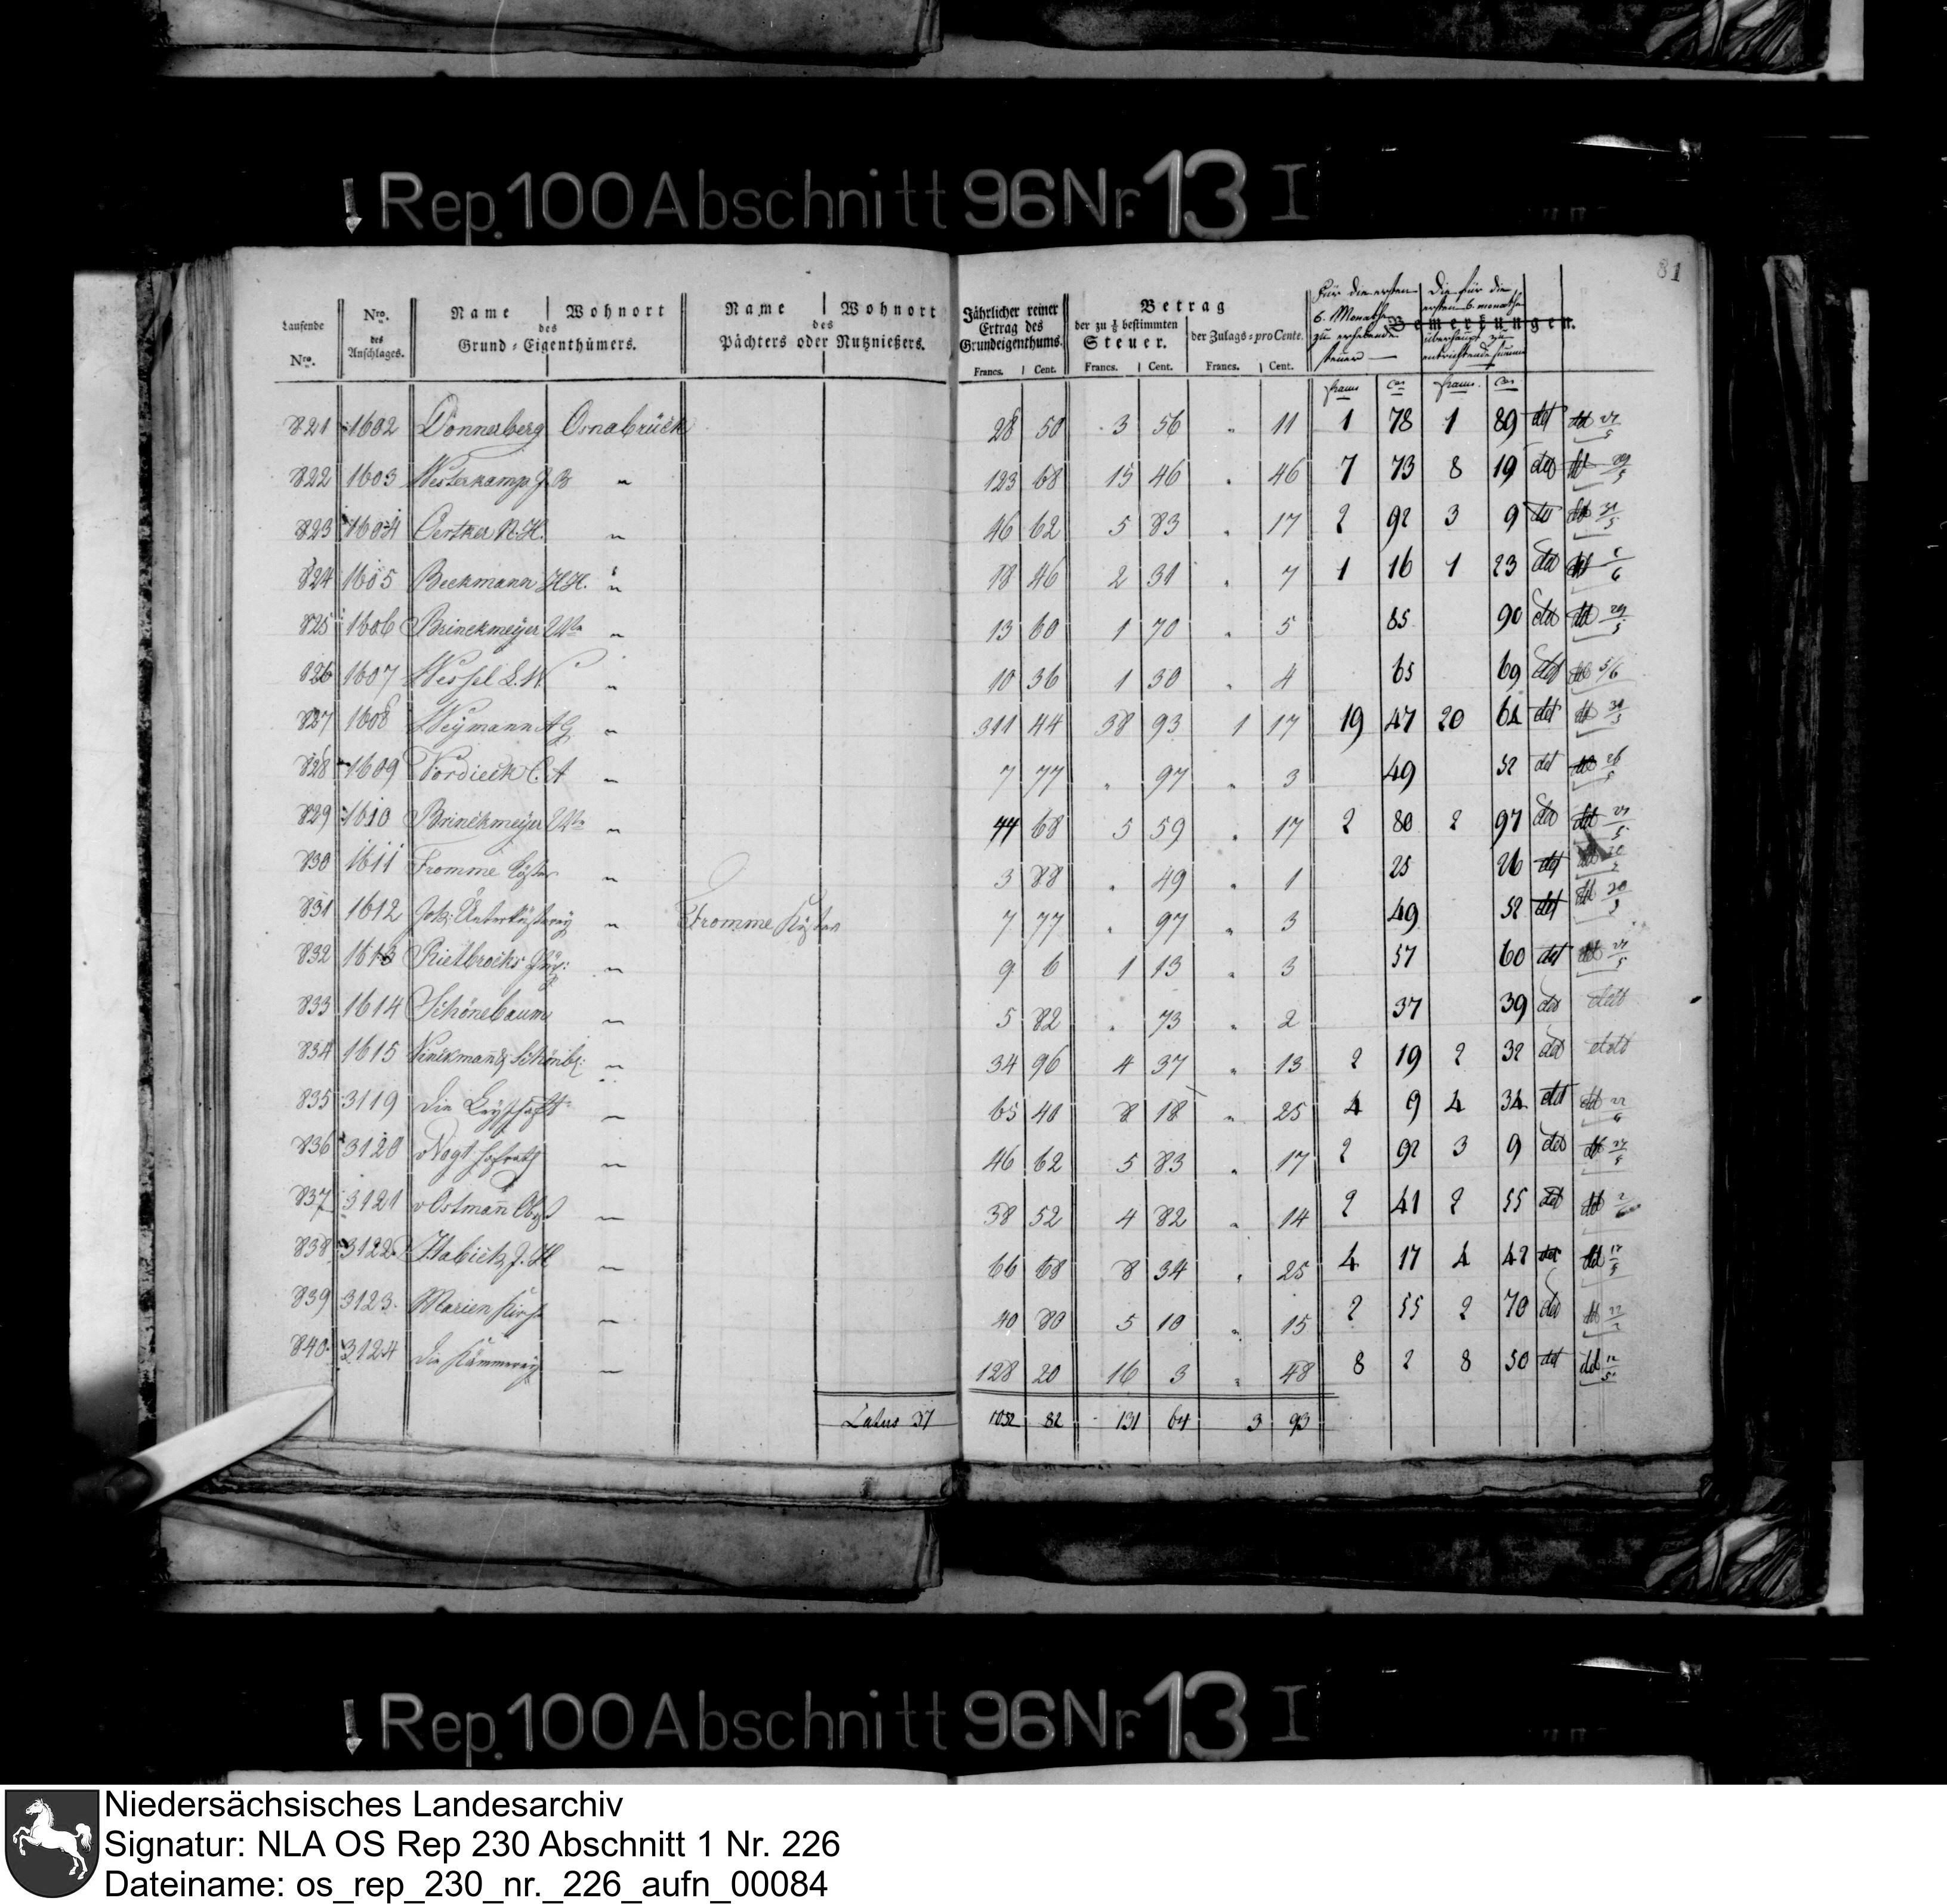 Rep. 100 Abschnitt 96 Nr. 13 I
81
Laufende Nro.
Nro. des Anschlages.
Name | Wohnort des Grund-Eigenthümers.
Name | Wohnort des Pächters oder Nutznießers.
Jährlicher reiner Ertrag des Grundeigenthums. Francs. | Cent.
Betrag
der zu ⅛ bestimmten Steuer. Francs. | Cent.
der Zulags-pro Cente. Francs. | Cent.
Für die ersten 6. Monathe zu erhebende steuer
Die für die ersten 6. monathe überhaupt zu entrichtende summe
Bemerkungen.
821 1602 Donnerberg Osnabrück 28 50 3 56 " 11 1 78 1 89 det
822 1603 Westerkamp J B " 123 68 15 46 " 46 7 73 8 19 det
823 1604 Oertker N. H. " 46 62 5 83 " 17 2 92 3 9 det
824 1605 Beckmann H H. " 18 46 2 31 " 7 1 16 1 23 det
825 1606 Brinckmeyer Wve " 13 60 1 70 " 5 85 90 det
826 1607 Wessel L. W " 10 36 1 30 " 4 65 69 det 5/6
827 1608 Weymann A G " 311 44 38 93 1 17 19 47 20 64 det
828 1609 Nordieck C. A " 7 77 " 97 " 3 49 52 det
829 1610 Brinckmeyer Wve " 44 68 5 59 " 17 2 80 2 97 det
830 1611 Fromme Küster " 3 88 " 49 " 1 25 26 det
831 1612 Joh: Unterküsterey " Fromme Küster 7 77 " 97 " 3 49 52 det
832 1613 Rietbrocks " 9 6 1 13 " 3 57 60 det
833 1614 Schönebaum " 5 82 " 73 " 2 37 39 det
834 1615 Vinckmann & Schöneb: " 34 96 4 37 " 13 2 19 2 32 det
835 3119 die Leyschaft " 65 40 8 18 " 25 4 9 4 34 det
836 3120 v Vogt Hofrath " 46 62 5 83 " 17 2 92 3 9 det
837 3121 v Ostmann " 38 52 4 82 " 14 2 41 2 55 det
838 3122 Habick J. H " 66 68 8 34 " 25 4 17 4 42 det
839 3123 Marien Kirche " 40 80 5 10 " 15 2 55 2 70 det
840 3124 die Kämmerey " 128 20 16 3 " 48 8 2 8 50 det
Latus 37 1052 82 131 64 3 93
Rep. 100 Abschnitt 96 Nr. 13 I
Niedersächsisches Landesarchiv
Signatur: NLA OS Rep 230 Abschnitt 1 Nr. 226
Dateiname: os_rep_230_nr._226_aufn_00084